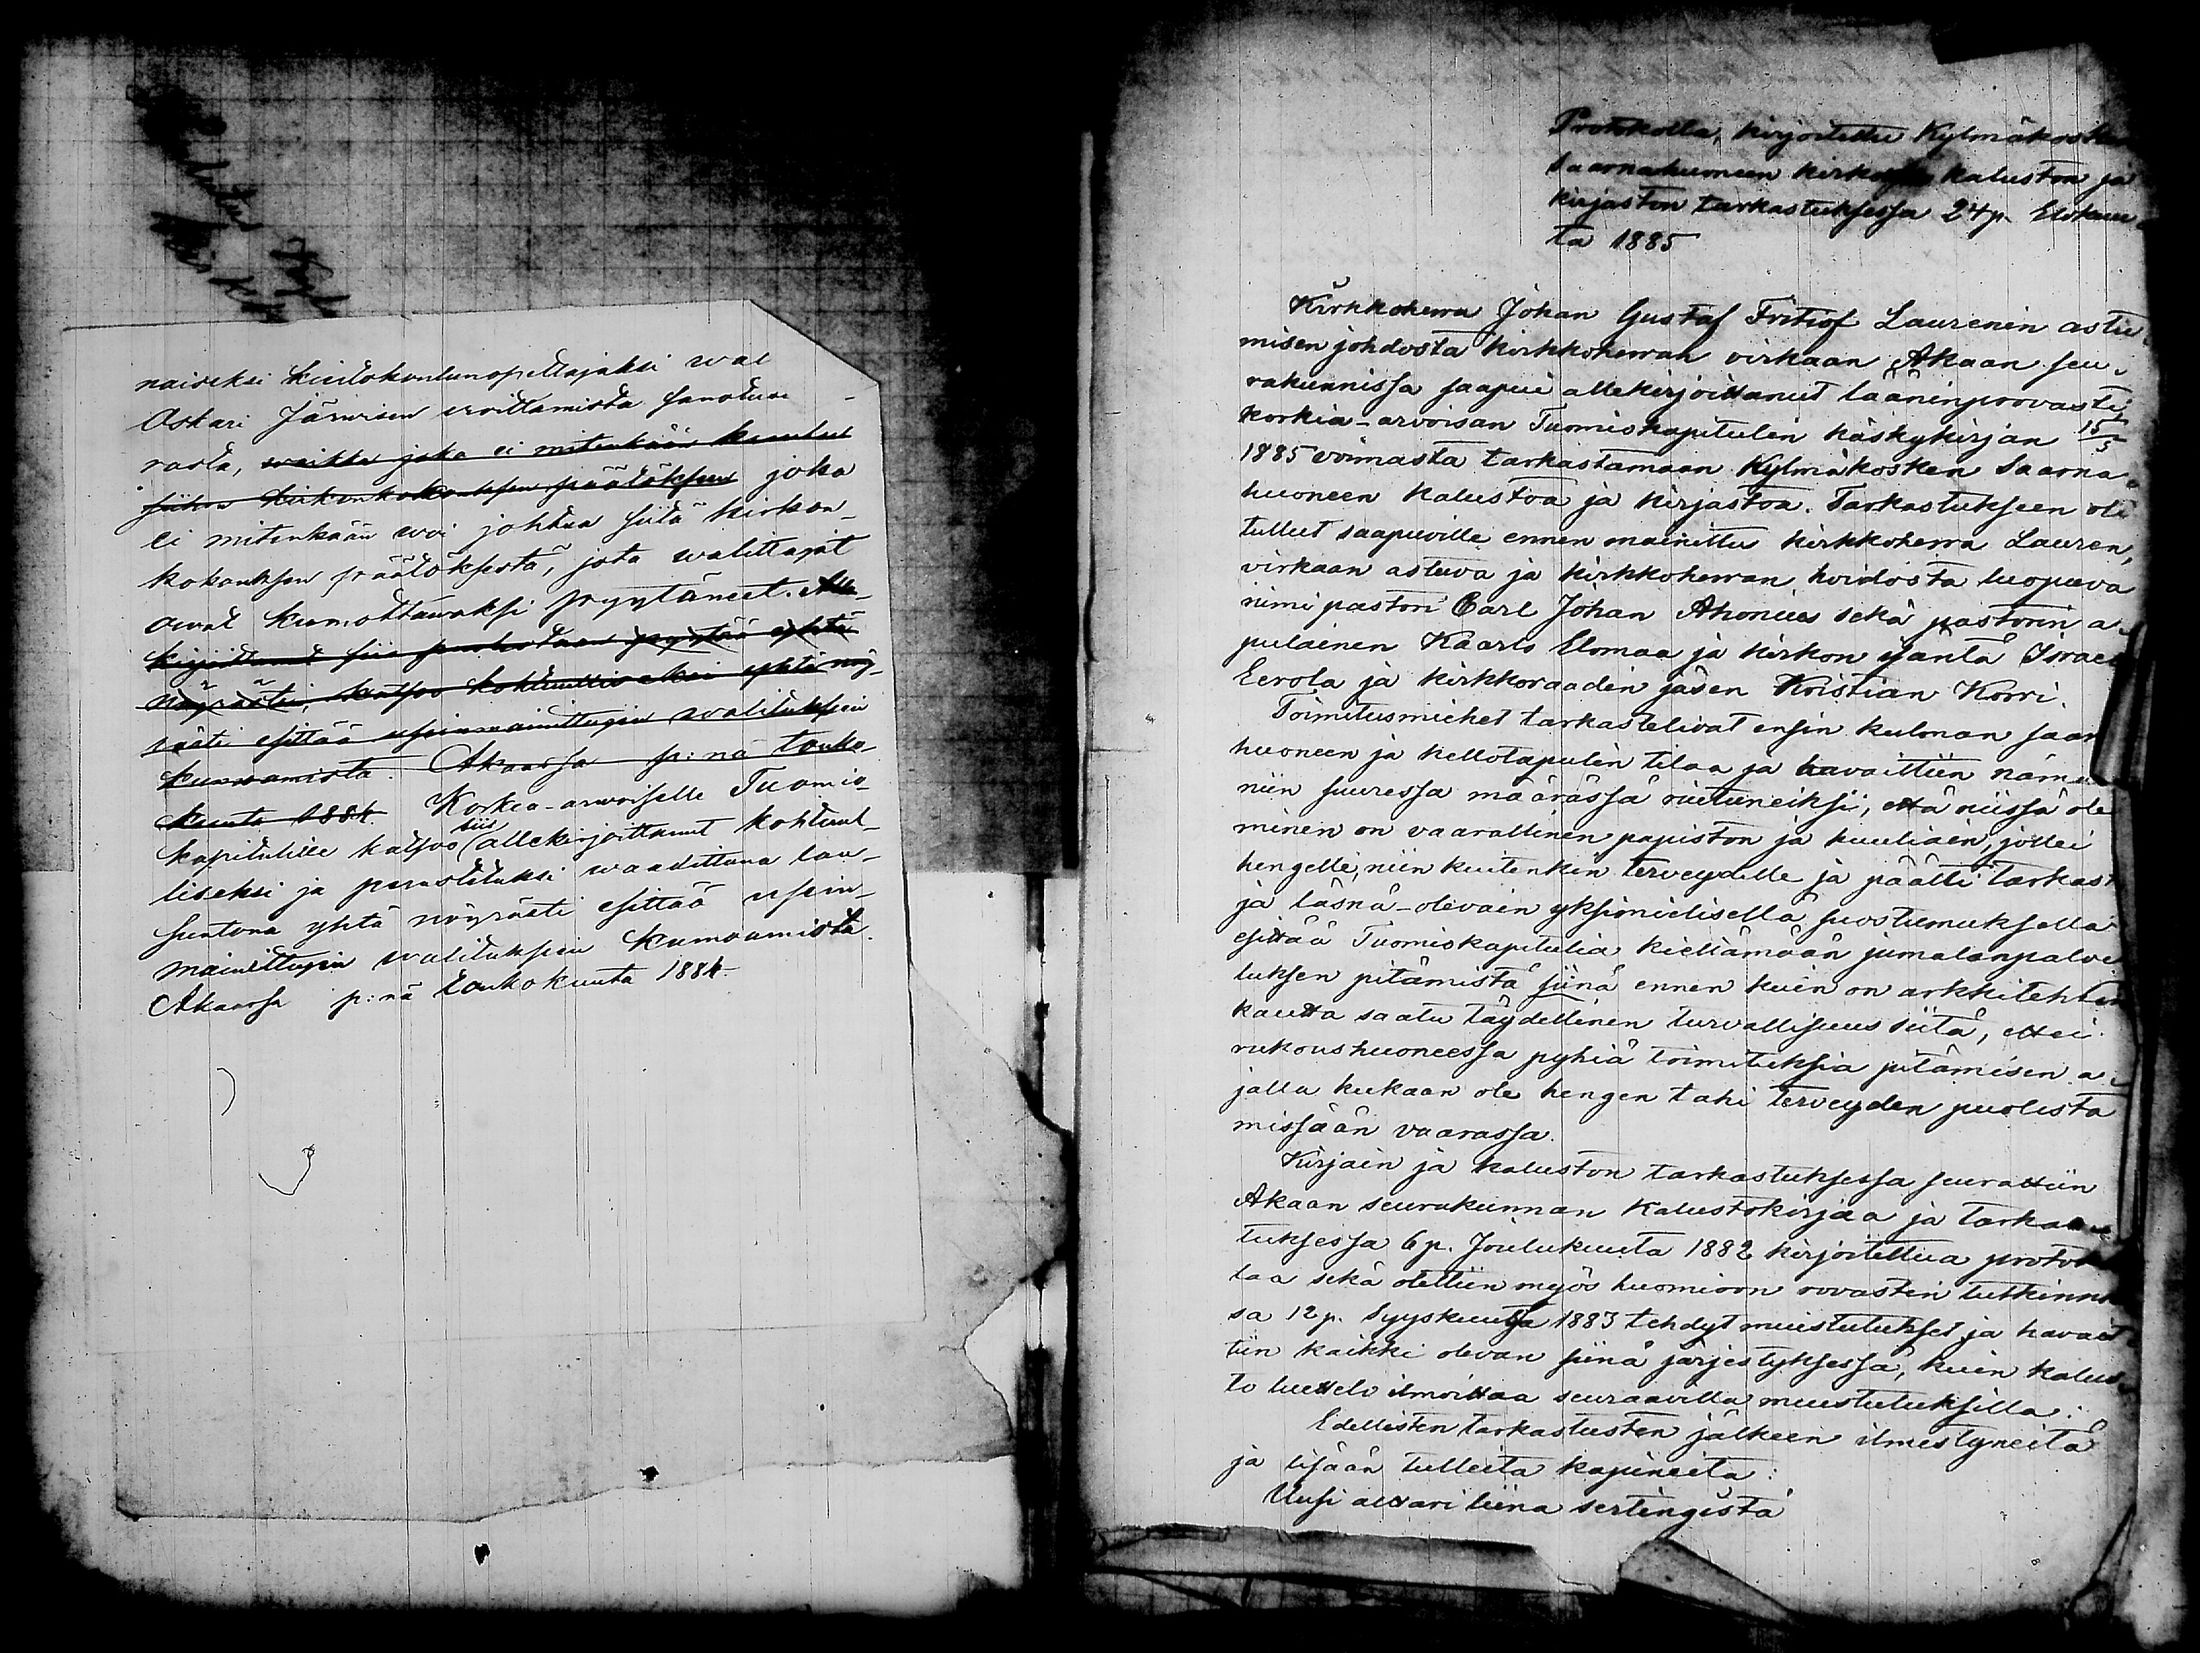 naiseksi kiertokoulunopettajaksi wal
Oskari Järwisen eroittamista sanotusta
rasta, waikka joka ei mitenkään kuulu
siihen kirkonkokouksen päätökseen joka
ei mitenkään woi johtua siitä kirkon-
kokouksen päätöksestä, jota walittajat
owat kumottawaksi pyytäneet. Alle-
kirjoittanut siis puolestaan pyytää yhtä
nöyrästi, katsoo kohtuulliseksi yhtä nöy-
rästi esittää usein mainittujen walituksien
kumoamista. Akaassa p:nä touko-
kuuta 1884. Korkea-arwoiselle Tuomio-
kapitulille katsoo siis allekirjoittanut kohtuul-
liseksi ja perustetuksi waadittuna lau-
suntona yhtä nöyrästi esittää usein-
mainittujen walituksien kumoamista.
Akaassa p:nä toukokuuta 1884.
Protokolla, kirjoitettu Kylmäkosken
Saarnahuoneen kirkon kaluston ja
kirjaston tarkastuksessa 24 p. Elokuu-
ta 1885
Kirkkoherra Johan Gustaf Fritiof Laurenin astu-
misen johdosta kirkkoherran virkaan Akaan seu-
rakunnissa saapui allekirjoittanut lääninproovasti
korkia-arvoisan Tuomiokapitulin käskykirjan 15/5
1885 voimasta tarkastamaan Kylmäkosken Saarna-
huoneen kalustoa ja kirjastoa. Tarkastukseen oli
tullut saapuville ennen mainittu kirkkoherra Lauren,
virkaan astuva ja kirkkoherran hoidosta luopuva
nimipastori Carl Johan Ahonius sekä pastorin a-
pulainen Kaarlo Elomaa ja kirkon isäntä Israel
Eerola ja kirkkoraadin jäsen Kristian Korri.
Toimitusmiehet tarkastelivat ensin kulman saar
huoneen ja kellotapulin tilaa ja havaittiin näm
niin suuressa määrässä rietuneiksi, että niissä ole
minen on vaarallinen papiston ja kuuliain, jollei
hengelle, niin kuitenkin terveydelle ja päätti tarkast
ja läsnä-olevain yksimielisellä suostumuksella
esittää Tuomiokapitulia kieltämään jumalanpalve
luksen pitämistä siinä ennen kuin on arkkitehtin
kautta saatu täydellinen turvallisuus siitä, ettei
rukoushuoneessa pyhiä toimituksia pitämisen a-
jalla kukaan ole hengen tahi terveyden puolesta
missään vaarassa.
Kirjain ja kaluston tarkastuksessa seurattiin
Akaan seurakunnan Kalustokirjaa ja tarkas-
tuksessa 6 p. Joulukuuta 1882 kirjoitettua protok
laa sekä otettiin myös huomioon rovastin tutkinno
sa 12 p. Syyskuuta 1883 tehdyt muistutukset ja havait-
tiin kaikki olevan siinä järjestyksessä, kuin kalus-
to luettelo ilmoittaa seuraavilla muistutuksilla:
Edellisten tarkastusten jälkeen ilmestyneitä
ja lisään tulleita kapineita:
Uusi alttari liina sertingistä